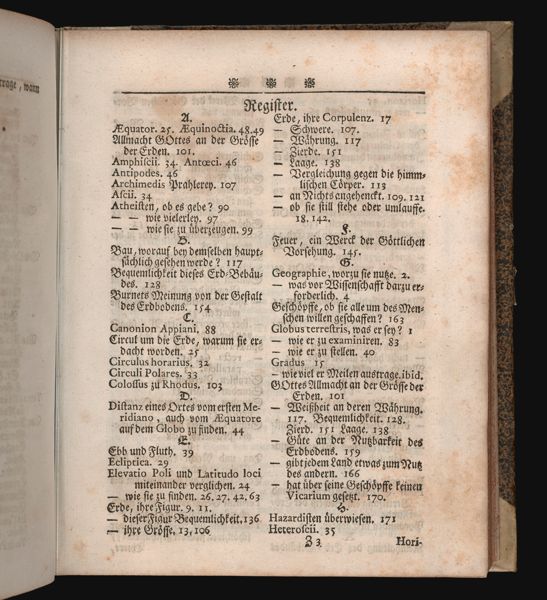 trage, wann
Register.
A.
Æquator. 25. Æquinoctia. 48.49
Allmacht GOttes an der Grösse
der Erden. 101.
Amphiscii. 34. Antœci. 46
Antipodes. 46
Archimedis Prahlerey. 107
Ascii. 34
Atheisten, ob es gebe? 90
— — wie vielerley. 97
— — wie sie zu überzeugen. 99
B.
Bau, worauf bey demselben haupt-
sächlich gesehen werde? 117
Bequemlichkeit dieses Erd-Gebäu-
des. 128
Burnets Meinung von der Gestalt
des Erdbodens. 154
C.
Canonion Appiani. 88
Circul um die Erde, warum sie er-
dacht worden. 25
Circulus horarius. 32
Circuli Polares. 33
Colossus zu Rhodus. 103
D.
Distanz eines Ortes vom ersten Me-
ridiano, auch vom Æquatore
auf dem Globo zu finden. 44
E.
Ebb und Fluth. 39
Ecliptica. 29
Elevatio Poli und Latitudo loci
miteinander verglichen. 24
— wie sie zu finden. 26. 27. 42. 63
Erde, ihre Figur. 9. 11.
— dieser Figur Bequemlichkeit. 136
— ihre Grösse. 13, 106
Erde, ihre Corpulenz. 17
— Schwere. 107.
— Währung. 117
— Zierde. 151
— Laage. 138
— Vergleichung gegen die himm-
lischen Cörper. 113
— an Nichts angehenckt. 109. 121
— ob sie still stehe oder umlauffe.
18. 142.
F.
Feuer, ein Werck der Göttlichen
Vorsehung. 145.
G.
Geographie, worzu sie nutze. 2.
— was vor Wissenschafft darzu er-
forderlich. 4
Geschöpffe, ob sie alle um des Men-
schen willen geschaffen? 163
Globus terrestris, was er sey? 1
— wie er zu examiniren. 83
— wie er zu stellen. 40
Gradus 15
— wie viel er Meilen austrage. ibid.
GOttes Allmacht an der Grösse der
Erden. 101
— Weißheit an deren Währung.
117. Bequemlichkeit. 128.
Zierd. 151 Laage. 138
— Güte an der Nutzbarkeit des
Erdbodens. 159
— gibt jedem Land etwas zum Nutz
des andern. 166
— hat über seine Geschöpffe keinen
Vicarium gesetzt. 170.
H.
Hazardisten überwiesen. 171
Heteroscii. 35
Z 3 Hori-